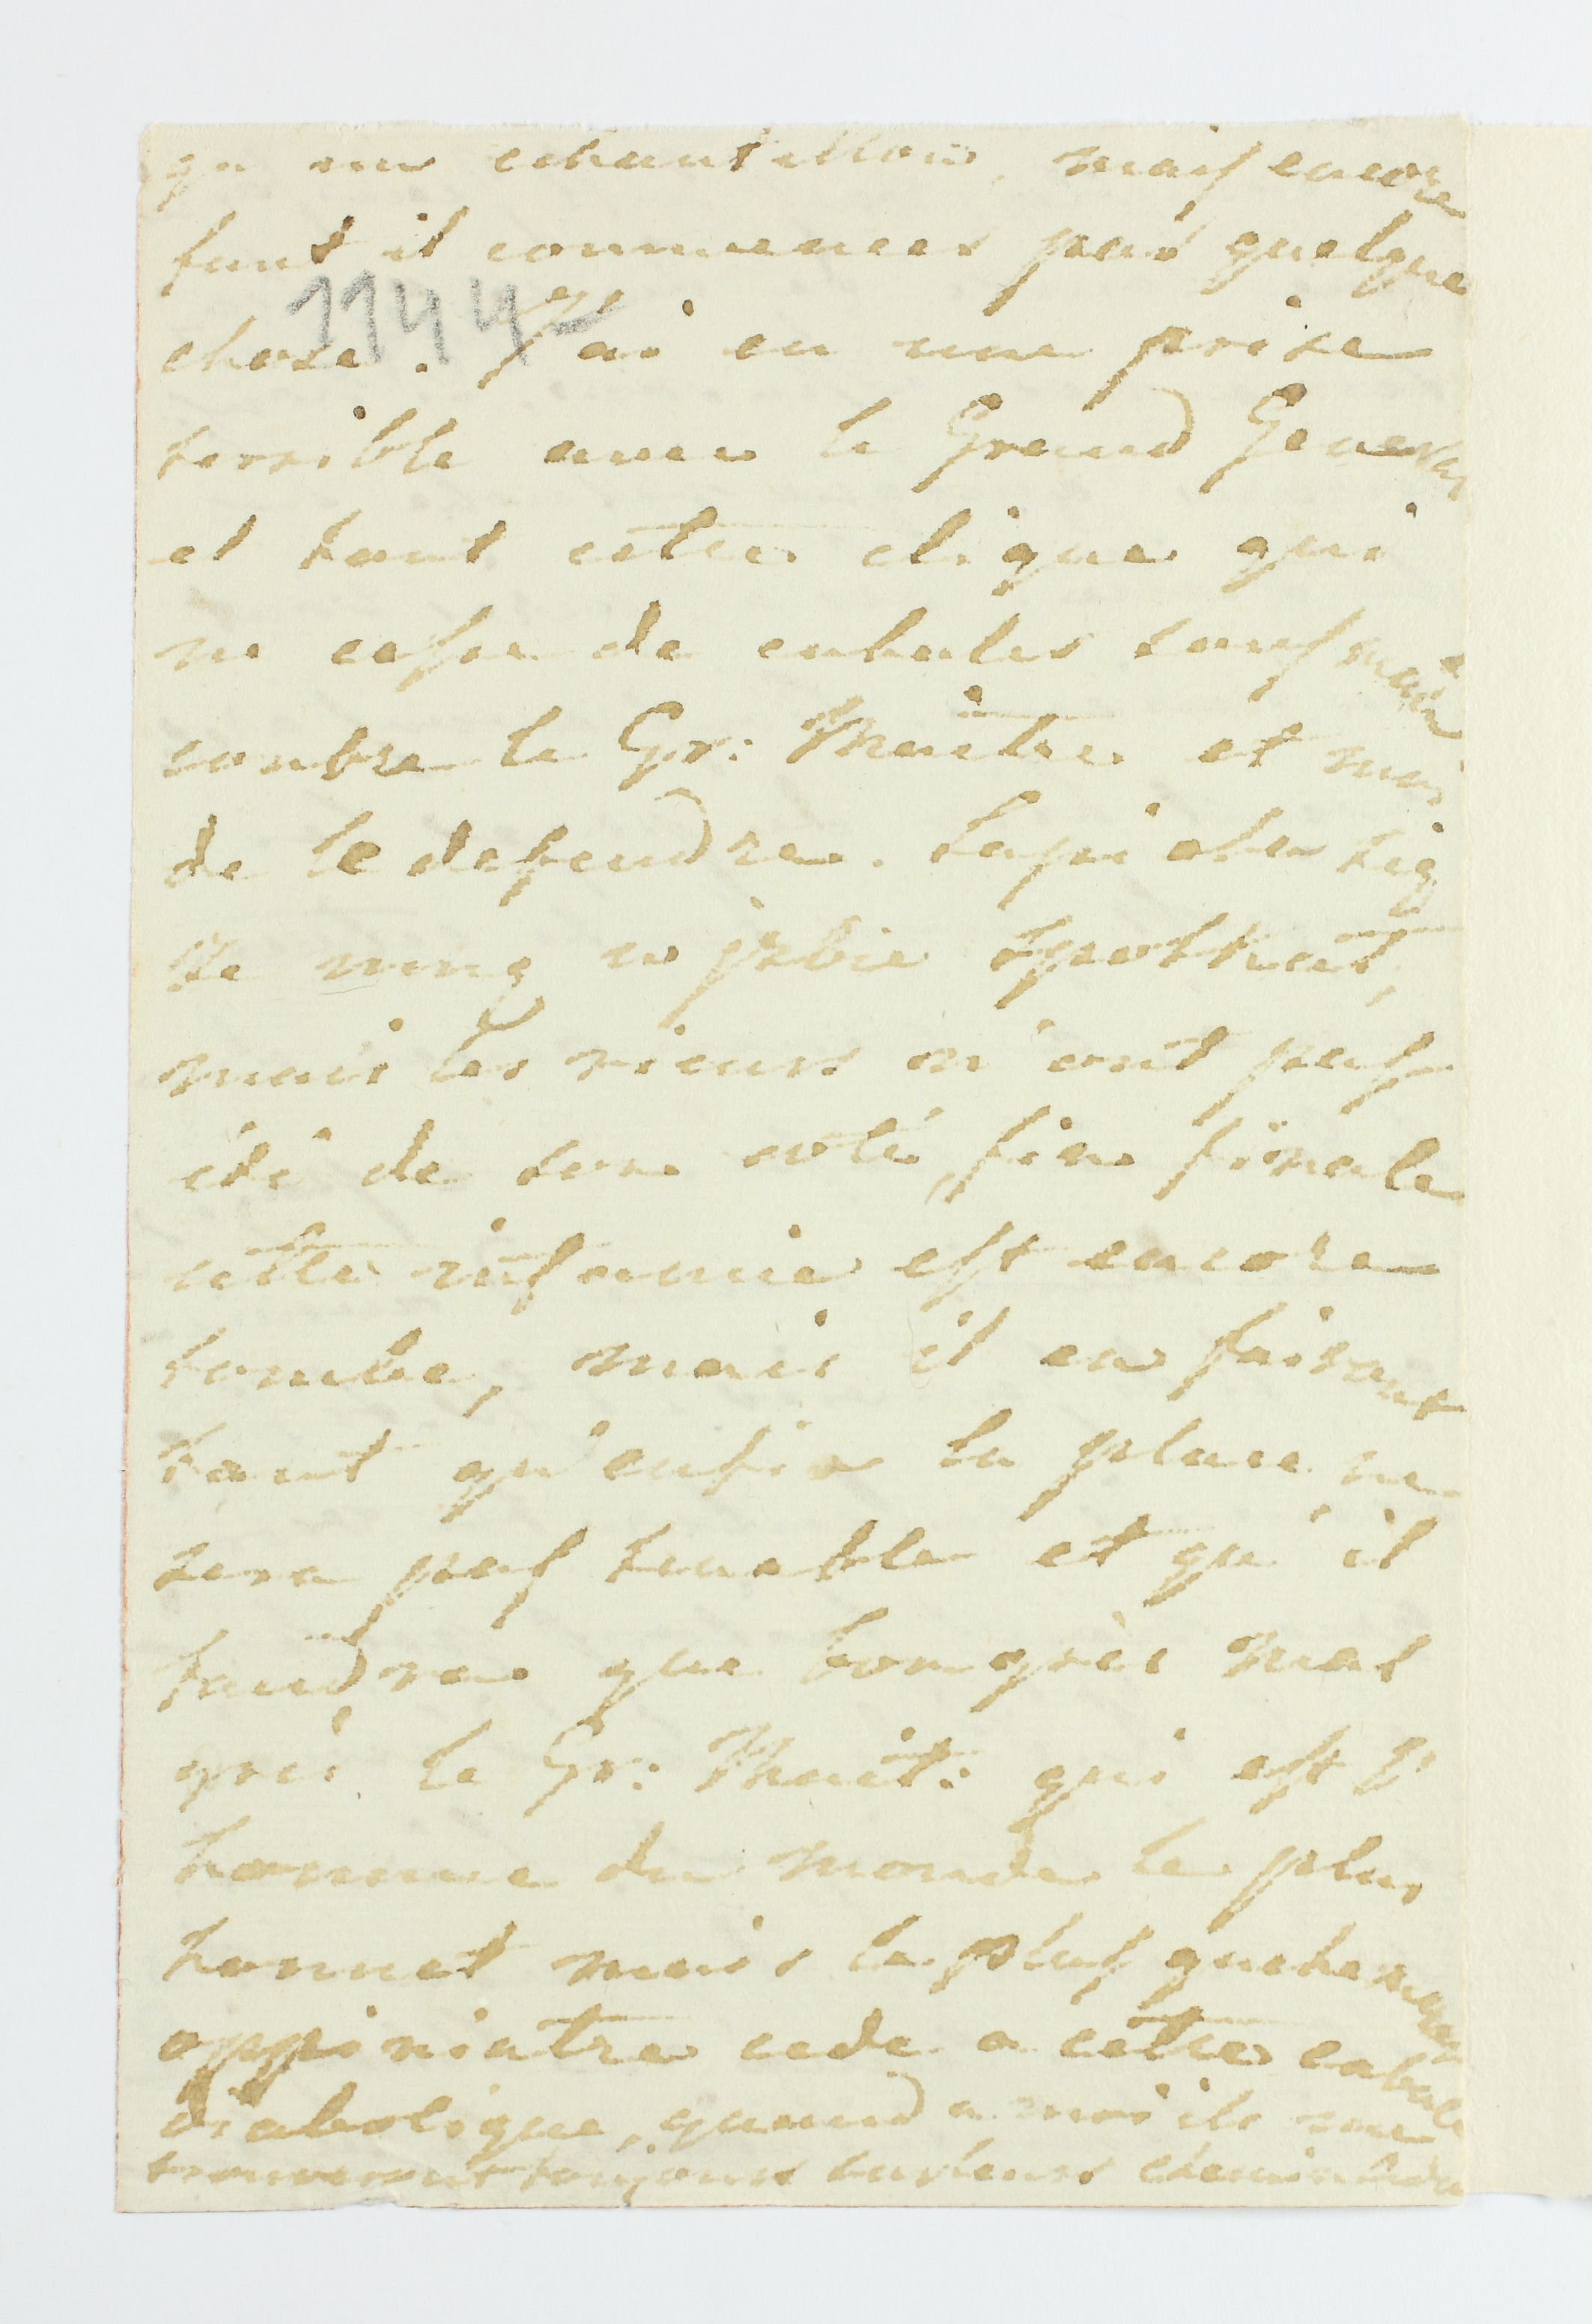 qu un echantillon, mais encore
faut il commencer par quelque
1144
chose. J'ai eu une prise
terrible avec le Grand General
et tout cette clique qui
ne cesse de cabaler tous
contre le Gr: Maitre et moi
de le defendre.
mais les rieurs n'ont pas
été de son coté, fin finale
cette infamie est encore
tombe, mais il en faisont
tant qu'enfin la place ne
sera pas tenable et qu'il
faudra que bongrés mal
gré le Gr: Mait: qui est l'
homme du monde le plus
honnet mais le plus
oppiniatre cede a cette cabale
diabolique, quand a moi ils me
trouveront toujours sur leurs